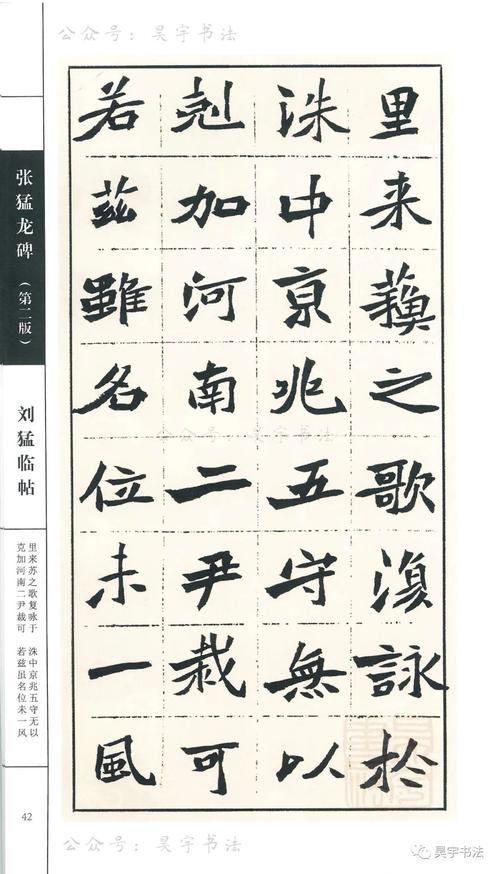 公众号：昊宇书法
里来蘓之歌澓詠扵
洙中京兆五守無以
剋加河南二尹裁可
若茲雖名位未一風
公众号：昊宇书法
张猛龙碑（第二版）
刘猛临帖
里来苏之歌复咏于 洙中京兆五守无以
克加河南二尹裁可 若兹虽名位未一风
42
公众号：昊宇书法
昊宇书法